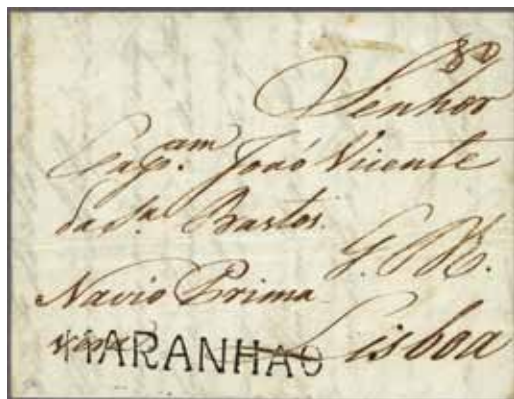 80
Senhor
Cap.am João Vicente
da S.a Bastos.
G. R.
Navio Prima
MARANHAO Lisboa